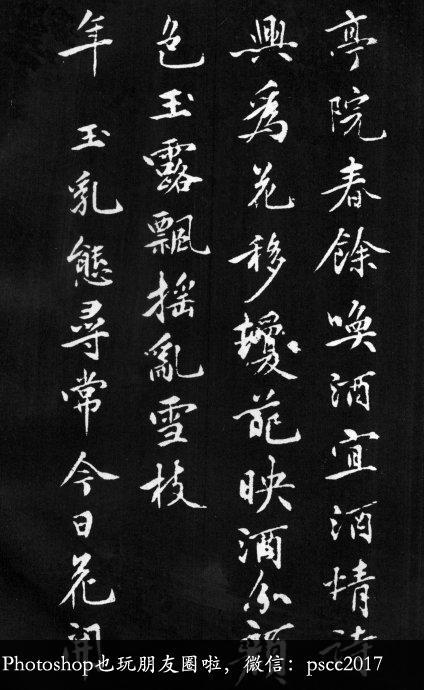 亭院春餘喚酒宜酒情詩
興爲花移映酒分顏
色玉露飄搖亂雪枝
年 玉乳態尋常今日花開
Photoshop也玩朋友圈啦，微信：pscc2017